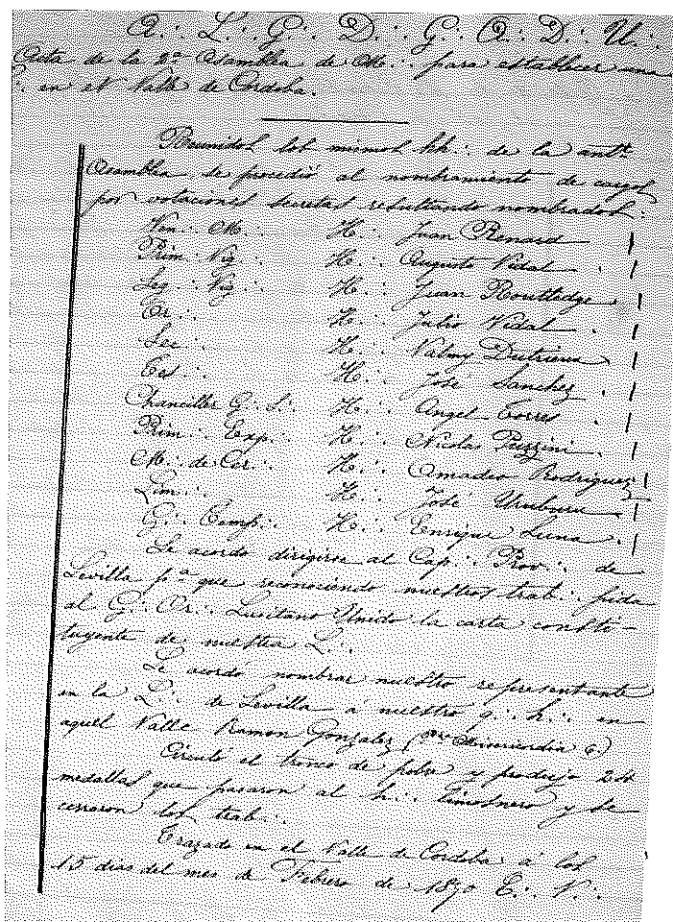 A∴ L∴ G∴ D∴ G∴ A∴ D∴ U∴
Acta de la 2ª Asamblea de M∴ para establecer una
L∴ en el Valle de Cordoba.
Reunidos los mismos hh∴ de la antr
Asamblea se procedió al nombramiento de cargos
por votaciones secretas resultando nombrados:
Ven∴ M∴ H∴ Juan Renard
Prim∴ Vig∴ H∴ Augusto Vidal
Seg∴ Vig∴ H∴ Juan Routledge
Or∴ H∴ Julio Vidal
Sec∴ H∴ Valmy
Tes∴ H∴ José Sanchez
Chanciller G∴ S∴ H∴ Angel Torres
Prim∴ Exp∴ H∴ Nicolas Puzzini
M∴ de Cer∴ H∴ Amadeo Rodriguez
Lim∴ H∴ José
G∴ Temp∴ H∴ Enrique Luna
Se acordo dirigirse al Cap∴ Prov∴ de
Sevilla pª que reconociendo nuestros trab∴ pida
al G∴ Or∴ Lusitano Unido la carta consti-
tuyente de nuestra L∴
Se acordó nombrar nuestro representante
en la L∴ de Sevilla a nuestro q∴ h∴ en
aquel Valle Ramon Gonzalez
Circuló el tronco de pobre y produjo 24
medallas que pasaron al h∴ limosnero y se
cerraron los trab∴
Trazado en el Valle de Cordoba á los
15 dias del mes de Febrero de 1870 E∴ V∴